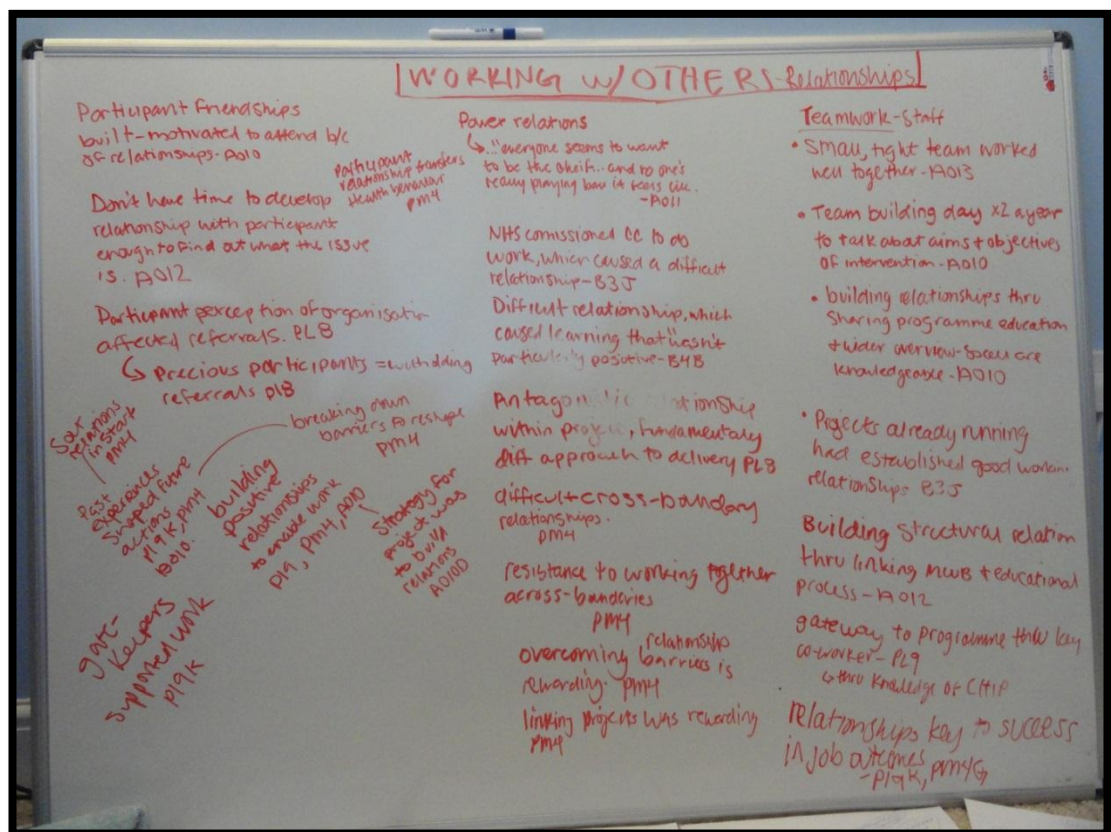 WORKING W/OTHERS-Relationships
Participant Friendships
built-motivated to attend b/c
of relationships-A010
Participant
relationship transfers
health behavior
PM4
Don't have time to develop
relationship with participant
enough to find out what the issue
is. A012
Participant perception of organisation
affected referrals. PL8
Precious participants = witholding
referrals pl8
Sour
relations
in start
PM4
past
experiences
shaped future
actions
p19k, pm4
A010.
breaking down
barriers to reshape
PM4
building
positive
relationships
to enable work
p19, pm4, A010
Strategy for
project was
to build
relations
A010D
gate-
keepers
supported work
p19k
Power relations
..."everyone seems to want
to be the cheif.. and no one's
really playing
-A011
NHS comissioned CC to do
work, which caused a difficult
relationship-B3J
Difficult relationship, which
caused learning that "wasn't
particularly positive-B4B
within project, fundamentaly
diff approach to delivery PL8
difficult cross-boundary
relationships.
PM4
resistance to working together
across-boundaries
PM4
relationship
overcoming barriers is
rewarding. PM4
linking projects was rewarding
PM4
Teamwork-staff
• Small, tight team worked
well together-A013
• Team building day x2 a year
to talk about aims + objectives
of intervention-A010
• building relationships thru
sharing programme education
+ wider overview- are
knowledgeable-A010
• Projects already running
had established good workin.
relationships B3J
Building structural relation
thru linking MWB + educational
process-A012
gateway to programme thru key
co-worker-PL9
thru knowledge of CHIP
relationships key to success
in job outcomes
-p19k, pm4G